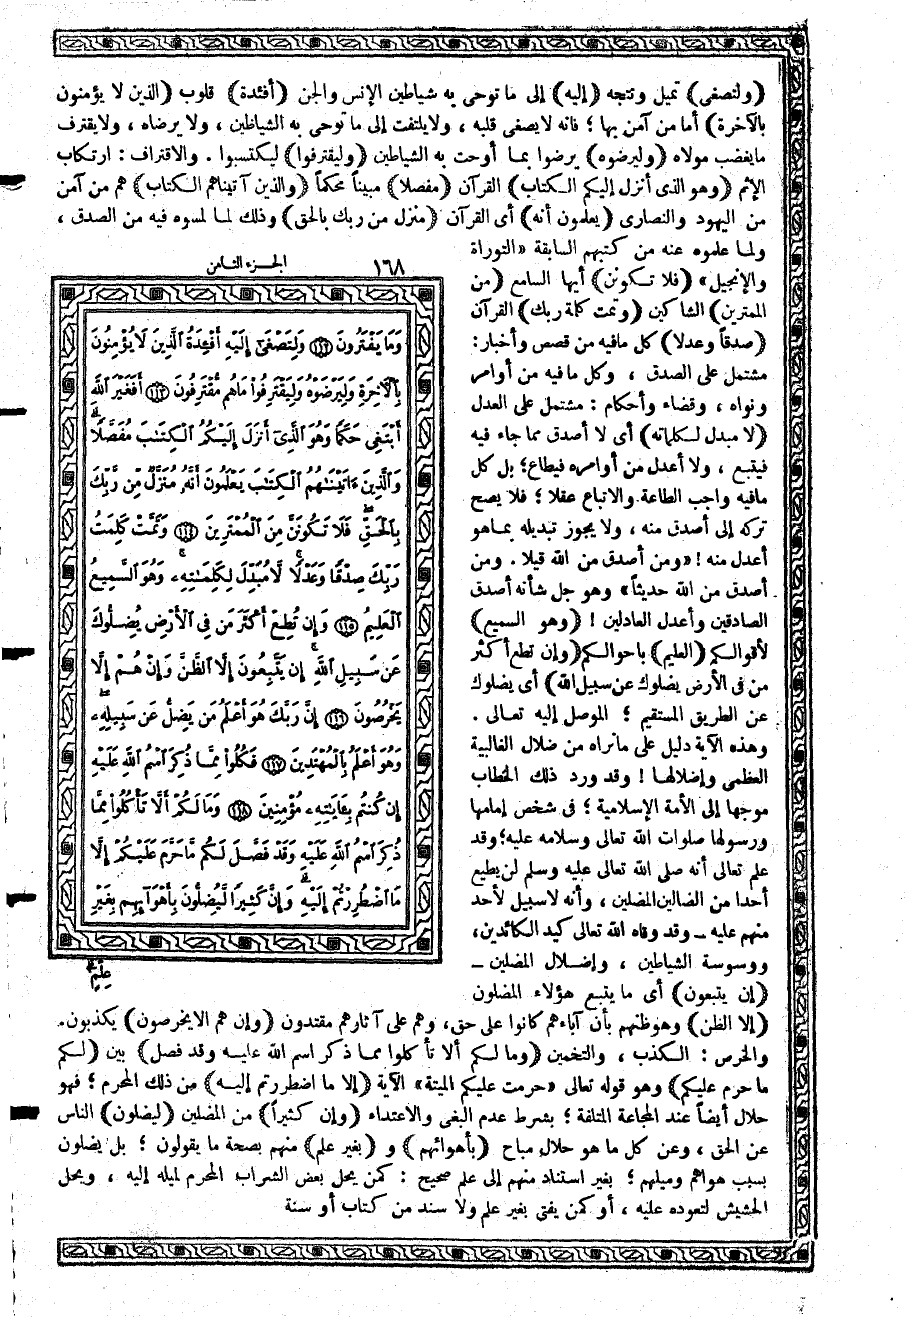 (ولتصغى) تميل وتتجه (إليه) إلى ما توحى به شياطين الإنس والجن (أفئدة) قلوب (الذين لا يؤمنون
بالآخرة) أما من آمن بها؛ فانه لا يصغى قلبه ، ولا يلتفت إلى ما توحى به الشياطين ، ولا يرضاه ، ولا يقترف
ما يغضب مولاه (وليرضوه) يرضوا بما أوحت به الشياطين (وليقترفوا) ليكتسبوا . والاقتراف : ارتكاب
الإثم (وهو الذى أنزل إليكم الكتاب) القرآن (مفصلا) مبيناً محكماً (والذين آتيناهم الكتاب) هم من آمن
من اليهود والنصارى (يعلمون أنه) أى القرآن (منزل من ربك بالحق) وذلك لما لمسوه فيه من الصدق ،
ولما علموه عنه من كتبهم السابقة «التوراة
والإنجيل» (فلا تكونن) أيها السامع (من
الممترين) الشاكين (وتمت كلمة ربك) القرآن
(صدقاً وعدلا) كل مافيه من قصص وأخبار :
مشتمل على الصدق ، وكل ما فيه من أوامر
ونواه ، وقضاء وأحكام : مشتمل على العدل
(لا مبدل لكلماته) أى لا أصدق مما جاء فيه
فيتبع ، ولا أعدل من أوامره فيطاع؛ بل كل
مافيه واجب الطاعة والاتباع عقلا ؛ فلا يصح
تركه إلى أصدق منه ، ولا يجوز تبديله بماهو
أعدل منه ! «ومن أصدق من الله قيلا . ومن
أصدق من الله حديثاً» وهو جل شأنه أصدق
الصادقين وأعدل العادلين ! (وهو السميع)
لأقوالكم (العليم) باحوالكم (وإن تطع أكثر
من فى الأرض يضلوك عن سبيل الله) أى يضلوك
عن الطريق المستقيم ؛ الموصل إليه تعالى .
وهذه الآية دليل على مانراه من ضلال الغالبية
العظمى وإضلالها ! وقد ورد ذلك الخطاب
موجها إلى الأمة الإسلامية ؛ فى شخص إمامها
ورسولها صلوات الله تعالى وسلامه عليه؛ وقد
علم تعالى أنه صلى الله تعالى عليه وسلم لن يطيع
أحدا من الضالين المضلين ، وأنه لاسبيل لأحد
منهم عليه ــ وقد وقاه الله تعالى كيد الكائدين،
ووسوسة الشياطين ، وإضلال المضلين ــ
(إن يتبعون) أى ما يتبع هؤلاء المضلون
الجزء الثامن ١٦٨
وَمَا يَفْتَرُونَ ﴿١١٢﴾ وَلِتَصْغَىٰٓ إِلَيْهِ أَفْـِٔدَةُ ٱلَّذِينَ لَا يُؤْمِنُونَ
بِٱلْـَٔاخِرَةِ وَلِيَرْضَوْهُ وَلِيَقْتَرِفُوا۟ مَا هُم مُّقْتَرِفُونَ ﴿١١٣﴾ أَفَغَيْرَ ٱللَّهِ
أَبْتَغِى حَكَمًا وَهُوَ ٱلَّذِىٓ أَنزَلَ إِلَيْكُمُ ٱلْكِتَـٰبَ مُفَصَّلًا ۚ
وَٱلَّذِينَ ءَاتَيْنَـٰهُمُ ٱلْكِتَـٰبَ يَعْلَمُونَ أَنَّهُۥ مُنَزَّلٌ مِّن رَّبِّكَ
بِٱلْحَقِّ ۖ فَلَا تَكُونَنَّ مِنَ ٱلْمُمْتَرِينَ ﴿١١٤﴾ وَتَمَّتْ كَلِمَتُ
رَبِّكَ صِدْقًا وَعَدْلًا ۚ لَّا مُبَدِّلَ لِكَلِمَـٰتِهِۦ ۚ وَهُوَ ٱلسَّمِيعُ
ٱلْعَلِيمُ ﴿١١٥﴾ وَإِن تُطِعْ أَكْثَرَ مَن فِى ٱلْأَرْضِ يُضِلُّوكَ
عَن سَبِيلِ ٱللَّهِ ۚ إِن يَتَّبِعُونَ إِلَّا ٱلظَّنَّ وَإِنْ هُمْ إِلَّا
يَخْرُصُونَ ﴿١١٦﴾ إِنَّ رَبَّكَ هُوَ أَعْلَمُ مَن يَضِلُّ عَن سَبِيلِهِۦ ۖ
وَهُوَ أَعْلَمُ بِٱلْمُهْتَدِينَ ﴿١١٧﴾ فَكُلُوا۟ مِمَّا ذُكِرَ ٱسْمُ ٱللَّهِ عَلَيْهِ
إِن كُنتُم بِـَٔايَـٰتِهِۦ مُؤْمِنِينَ ﴿١١٨﴾ وَمَا لَكُمْ أَلَّا تَأْكُلُوا۟ مِمَّا
ذُكِرَ ٱسْمُ ٱللَّهِ عَلَيْهِ وَقَدْ فَصَّلَ لَكُم مَّا حَرَّمَ عَلَيْكُمْ إِلَّا
مَا ٱضْطُرِرْتُمْ إِلَيْهِ ۗ وَإِنَّ كَثِيرًا لَّيُضِلُّونَ بِأَهْوَآئِهِم بِغَيْرِ
عِلْمٍ ۗ
(إلا الظن) وهو ظنهم بأن آباءهم كانوا على حق، وهم على آثارهم مقتدون (وإن هم الا يخرصون) يكذبون.
والخرص : الكذب ، والتخمين (وما لكم ألا تأكلوا مما ذكر اسم الله عليه وقد فصل) بين (لكم
ما حرم عليكم) وهو قوله تعالى «حرمت عليكم الميتة» الآية (إلا ما اضطررتم إليه) من ذلك المحرم ؛ فهو
حلال أيضاً عند المجاعة المتلفة ؛ بشرط عدم البغى والاعتداء (وإن كثيراً) من المضلين (ليضلون) الناس
عن الحق ، وعن كل ما هو حلال مباح (بأهوائهم) و (بغير علم) منهم بصحة ما يقولون ؛ بل يضلون
بسبب هواهم وميلهم ؛ بغير استناد منهم إلى علم صحيح : كمن يحل بعض الشراب المحرم لميله إليه ، ويحل
الحشيش لتعوده عليه ، أو كمن يفتى بغير علم ولا سند من كتاب أو سنة